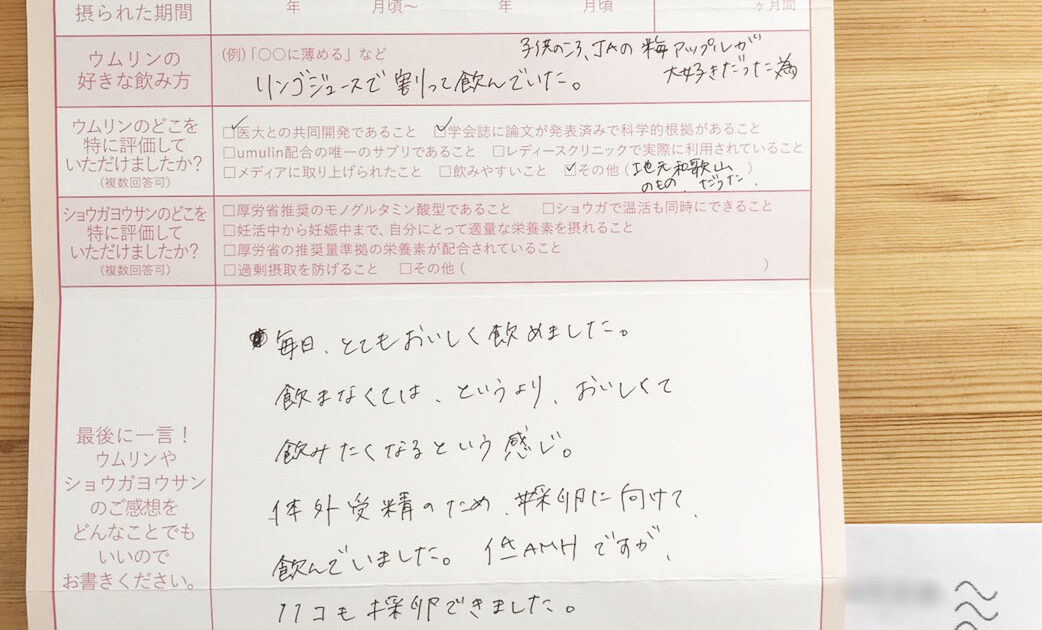 摂られた期間
年 月頃〜 年 月頃
ヶ月間
ウムリンの
好きな飲み方
(例)「〇〇に薄める」など
子供のころ、JAの梅アップルが
大好きだった為
リンゴジュースで割って飲んでいた。
ウムリンのどこを
特に評価して
いただけましたか?
(複数回答可)
☑医大との共同開発であること ☑学会誌に論文が発表済みで科学的根拠があること
□umulin配合の唯一のサプリであること □レディースクリニックで実際に利用されていること
□メディアに取り上げられたこと □飲みやすいこと ☑その他(地元和歌山
のもの だった、)
ショウガヨウサンのどこを
特に評価して
いただけましたか?
(複数回答可)
□厚労省推奨のモノグルタミン酸型であること □ショウガで温活も同時にできること
□妊活中から妊娠中まで、自分にとって適量な栄養素を摂れること
□厚労省の推奨量準拠の栄養素が配合されていること
□過剰摂取を防げること □その他( )
最後に一言!
ウムリンや
ショウガヨウサン
のご感想を
どんなことでも
いいので
お書きください。
毎日、とてもおいしく飲めました。
飲まなくては、というより、おいしくて
飲みたくなるという感じ。
体外受精のため、採卵に向けて、
飲んでいました。低AMHですが、
11コも採卵できました。